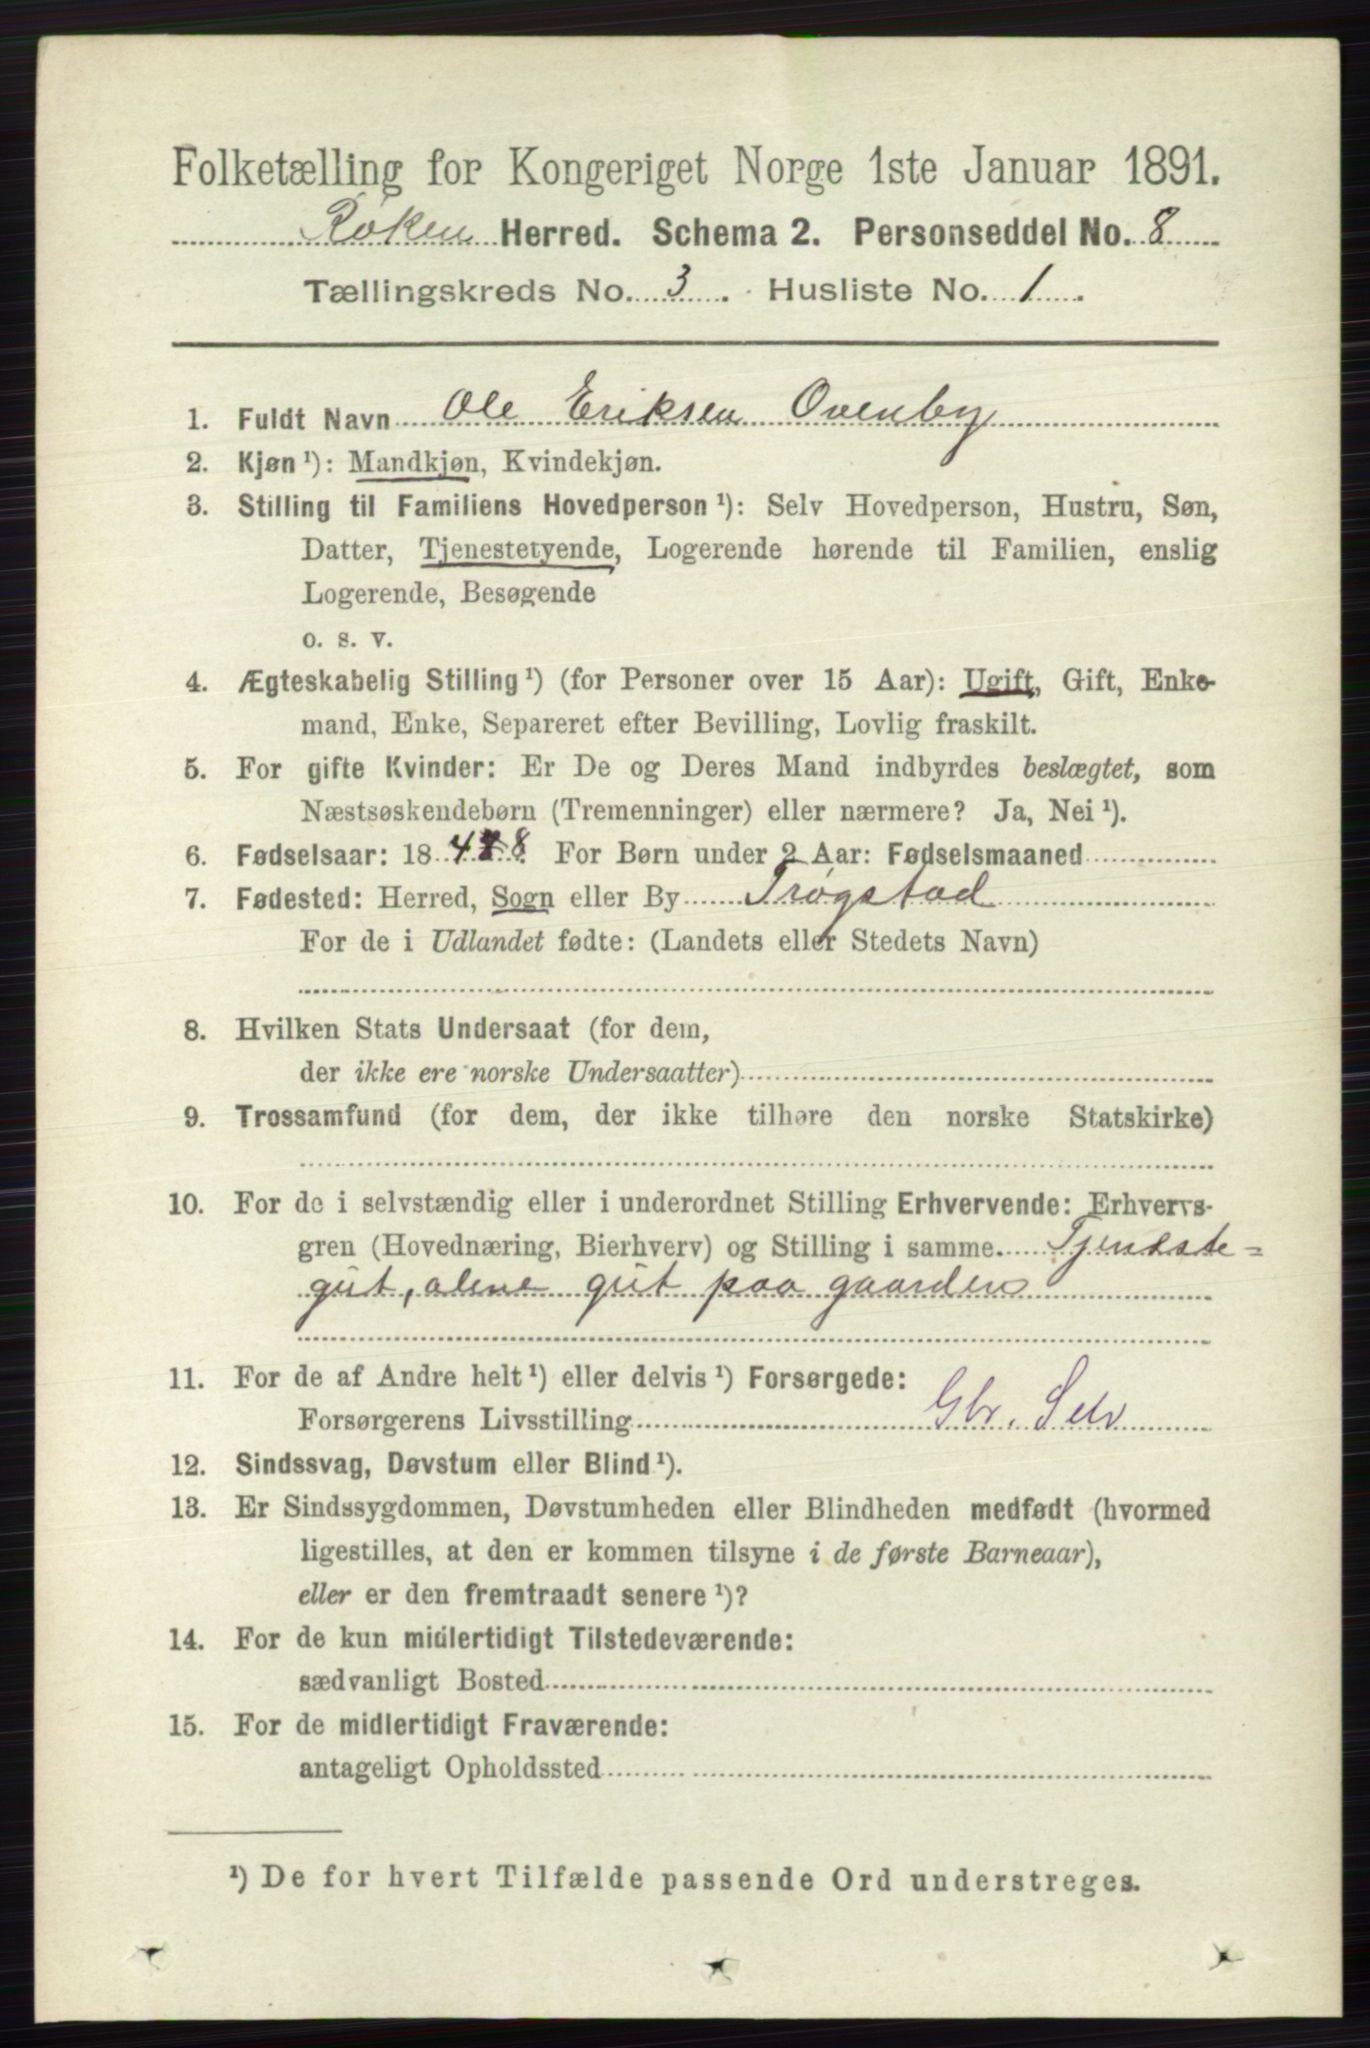 Folketælling for Kongeriget Norge 1ste Januar 1891.
Røken Herred. Schema 2. Personseddel No. 8
Tællingskreds No. 3. Husliste No. 1.
1. Fuldt Navn Ole Eriksen Ovenby
2. Kjøn ¹): Mandkjøn, Kvindekjøn.
3. Stilling til Familiens Hovedperson ¹): Selv Hovedperson, Hustru, Søn,
Datter, Tjenestetyende, Logerende hørende til Familien, enslig
Logerende, Besøgende
o. s. v.
4. Ægteskabelig Stilling ¹) (for Personer over 15 Aar): Ugift, Gift, Enke-
mand, Enke, Separeret efter Bevilling, Lovlig fraskilt.
5. For gifte Kvinder: Er De og Deres Mand indbyrdes beslægtet, som
Næstsøskendebørn (Tremenninger) eller nærmere? Ja, Nei ¹).
6. Fødselsaar: 18 48. For Børn under 2 Aar: Fødselsmaaned
7. Fødested: Herred, Sogn eller By Trøgstad
For de i Udlandet fødte: (Landets eller Stedets Navn)
8. Hvilken Stats Undersaat (for dem,
der ikke ere norske Undersaatter)
9. Trossamfund (for dem, der ikke tilhøre den norske Statskirke)
10. For de i selvstændig eller i underordnet Stilling Erhvervende: Erhvervs-
gren (Hovednæring, Bierhverv) og Stilling i samme. Tjeneste=
gut, alene gut paa gaarden
11. For de af Andre helt ¹) eller delvis ¹) Forsørgede:
Forsørgerens Livsstilling Gbr. Selv
12. Sindssvag, Døvstum eller Blind ¹).
13. Er Sindssygdommen, Døvstumheden eller Blindheden medfødt (hvormed
ligestilles, at den er kommen tilsyne i de første Barneaar),
eller er den fremtraadt senere ¹)?
14. For de kun midlertidigt Tilstedeværende:
sædvanligt Bosted
15. For de midlertidigt Fraværende:
antageligt Opholdssted
¹) De for hvert Tilfælde passende Ord understreges.